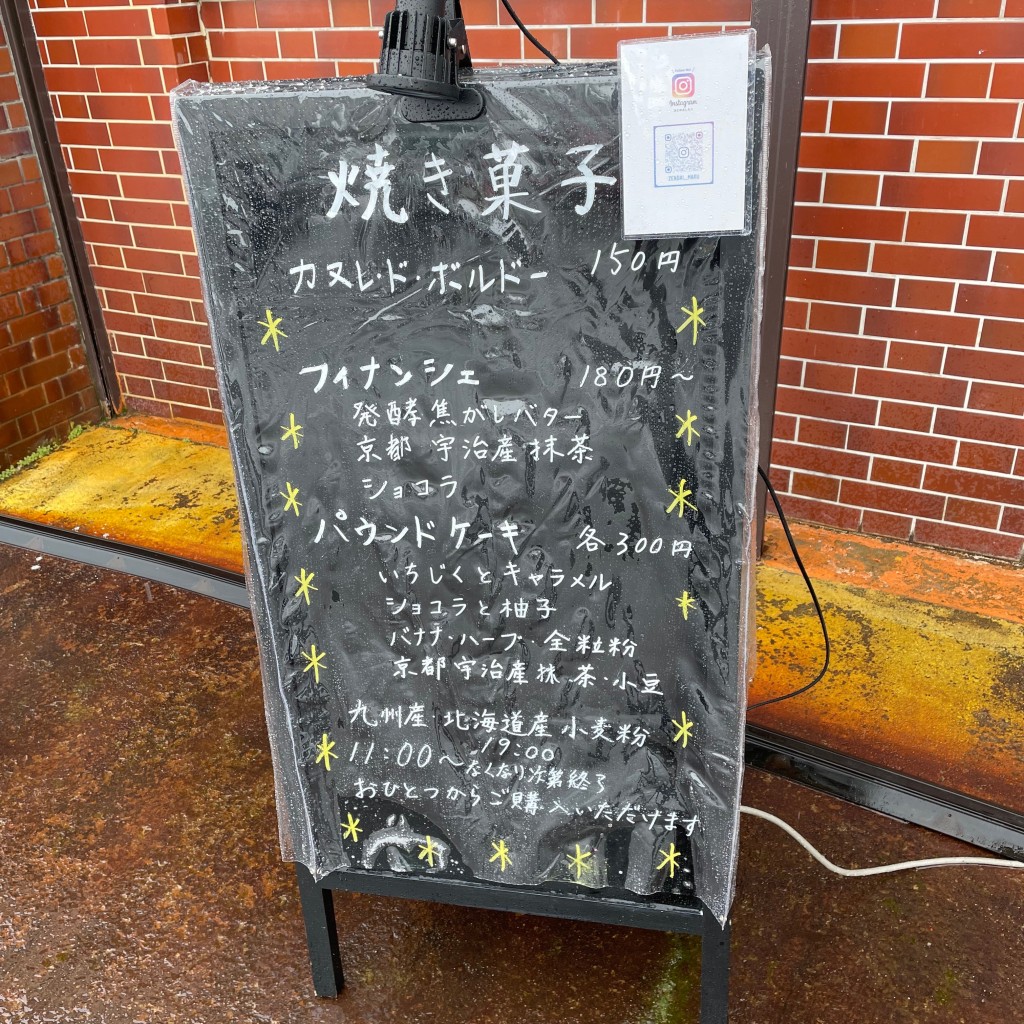 Instagram
焼き菓子
カヌレ・ド・ボルドー 150円
フィナンシェ 180円～
発酵焦がしバター
京都 宇治産抹茶
ショコラ
パウンドケーキ 各300円
いちじくとキャラメル
ショコラと柚子
バナナ・ハーブ・全粒粉
京都宇治産抹茶・小豆
九州産・北海道産小麦粉
11:00～19:00
なくなり次第終了
おひとつからご購入いただけます